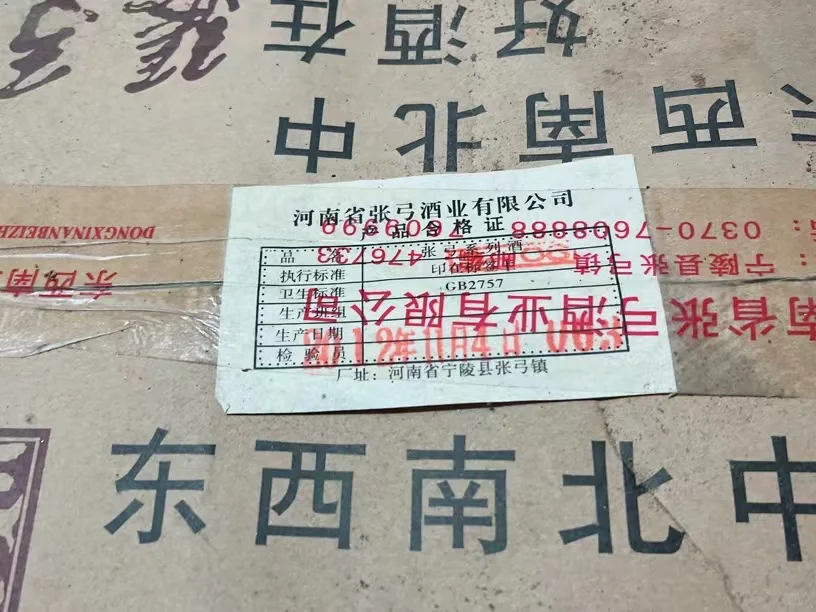 好酒在
东西南北中
河南省张弓酒业有限公司
产品合格证
品 名 张弓系列酒
执行标准 印在标签上
卫生标准 GB2757
生产班组
生产日期 2012年11月4日
检验员
厂址：河南省宁陵县张弓镇
0370-7608888 7609999
宁陵县张弓镇 476733
南省张弓酒业有限公司
DONGXINANBEIZH
东西南
东西南北中